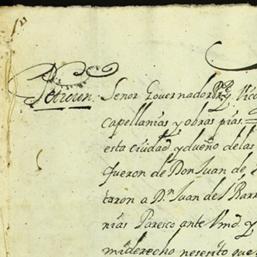 Petizion. Señor Governador Pr. y Vic
capellanias y obras pias
esta ciudad, y dueño de las
queron de Don Juan de
taron a Dn. Juan del Barr
nias Paresco ante Vmd. y
mi derecho nesesito que